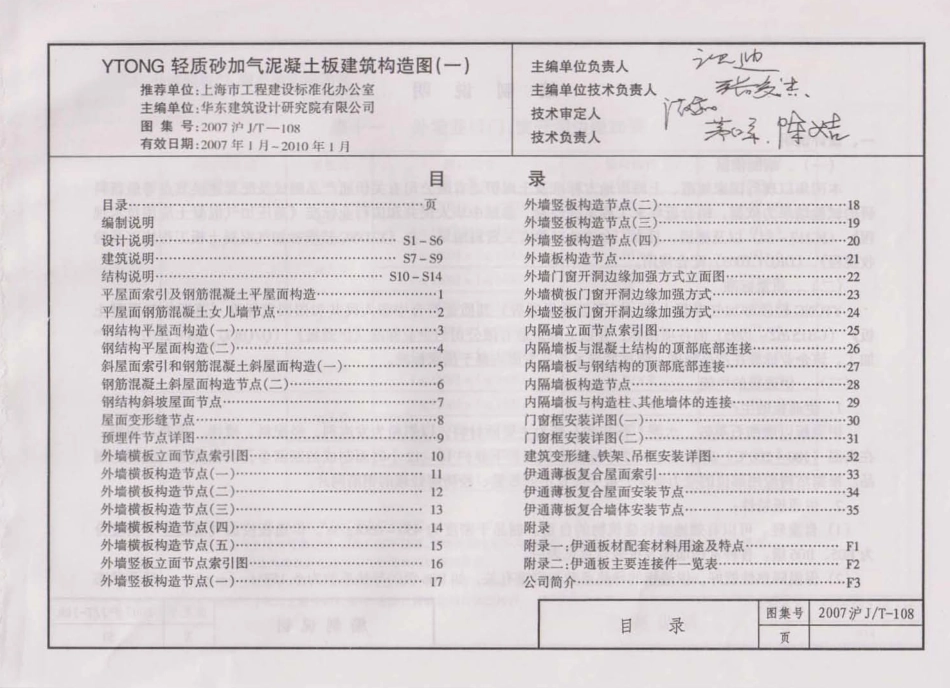 YTONG 轻质砂加气泥凝土板建筑构造图(一)
推荐单位:上海市工程建设标准化办公室
主编单位:华东建筑设计研究院有限公司
图 集 号:2007沪J/T-108
有效日期:2007年1月~2010年1月
主编单位负责人
主编单位技术负责人
技术审定人
技术负责人
目 录
目录 页
编制说明
设计说明 S1-S6
建筑说明 S7-S9
结构说明 S10-S14
平屋面索引及钢筋混凝土平屋面构造 1
平屋面钢筋混凝土女儿墙节点 2
钢结构平屋面构造(一) 3
钢结构平屋面构造(二) 4
斜屋面索引和钢筋混凝土斜屋面构造(一) 5
钢筋混凝土斜屋面构造节点(二) 6
钢结构斜坡屋面节点 7
屋面变形缝节点 8
预埋件节点详图 9
外墙横板立面节点索引图 10
外墙横板构造节点(一) 11
外墙横板构造节点(二) 12
外墙横板构造节点(三) 13
外墙横板构造节点(四) 14
外墙横板构造节点(五) 15
外墙竖板立面节点索引图 16
外墙竖板构造节点(一) 17
外墙竖板构造节点(二) 18
外墙竖板构造节点(三) 19
外墙竖板构造节点(四) 20
外墙板构造节点 21
外墙门窗开洞边缘加强方式立面图 22
外墙横板门窗开洞边缘加强方式 23
外墙竖板门窗开洞边缘加强方式 24
内隔墙立面节点索引图 25
内隔墙板与混凝土结构的顶部底部连接 26
内隔墙板与钢结构的顶部底部连接 27
内隔墙板构造节点 28
内隔墙板与构造柱、其他墙体的连接 29
门窗框安装详图(一) 30
门窗框安装详图(二) 31
建筑变形缝、铁架、吊框安装详图 32
伊通薄板复合屋面索引 33
伊通薄板复合屋面安装节点 34
伊通薄板复合墙体安装节点 35
附录
附录一:伊通板材配套材料用途及特点 F1
附录二:伊通板主要连接件一览表 F2
公司简介 F3
目 录
图集号 2007沪J/T-108
页